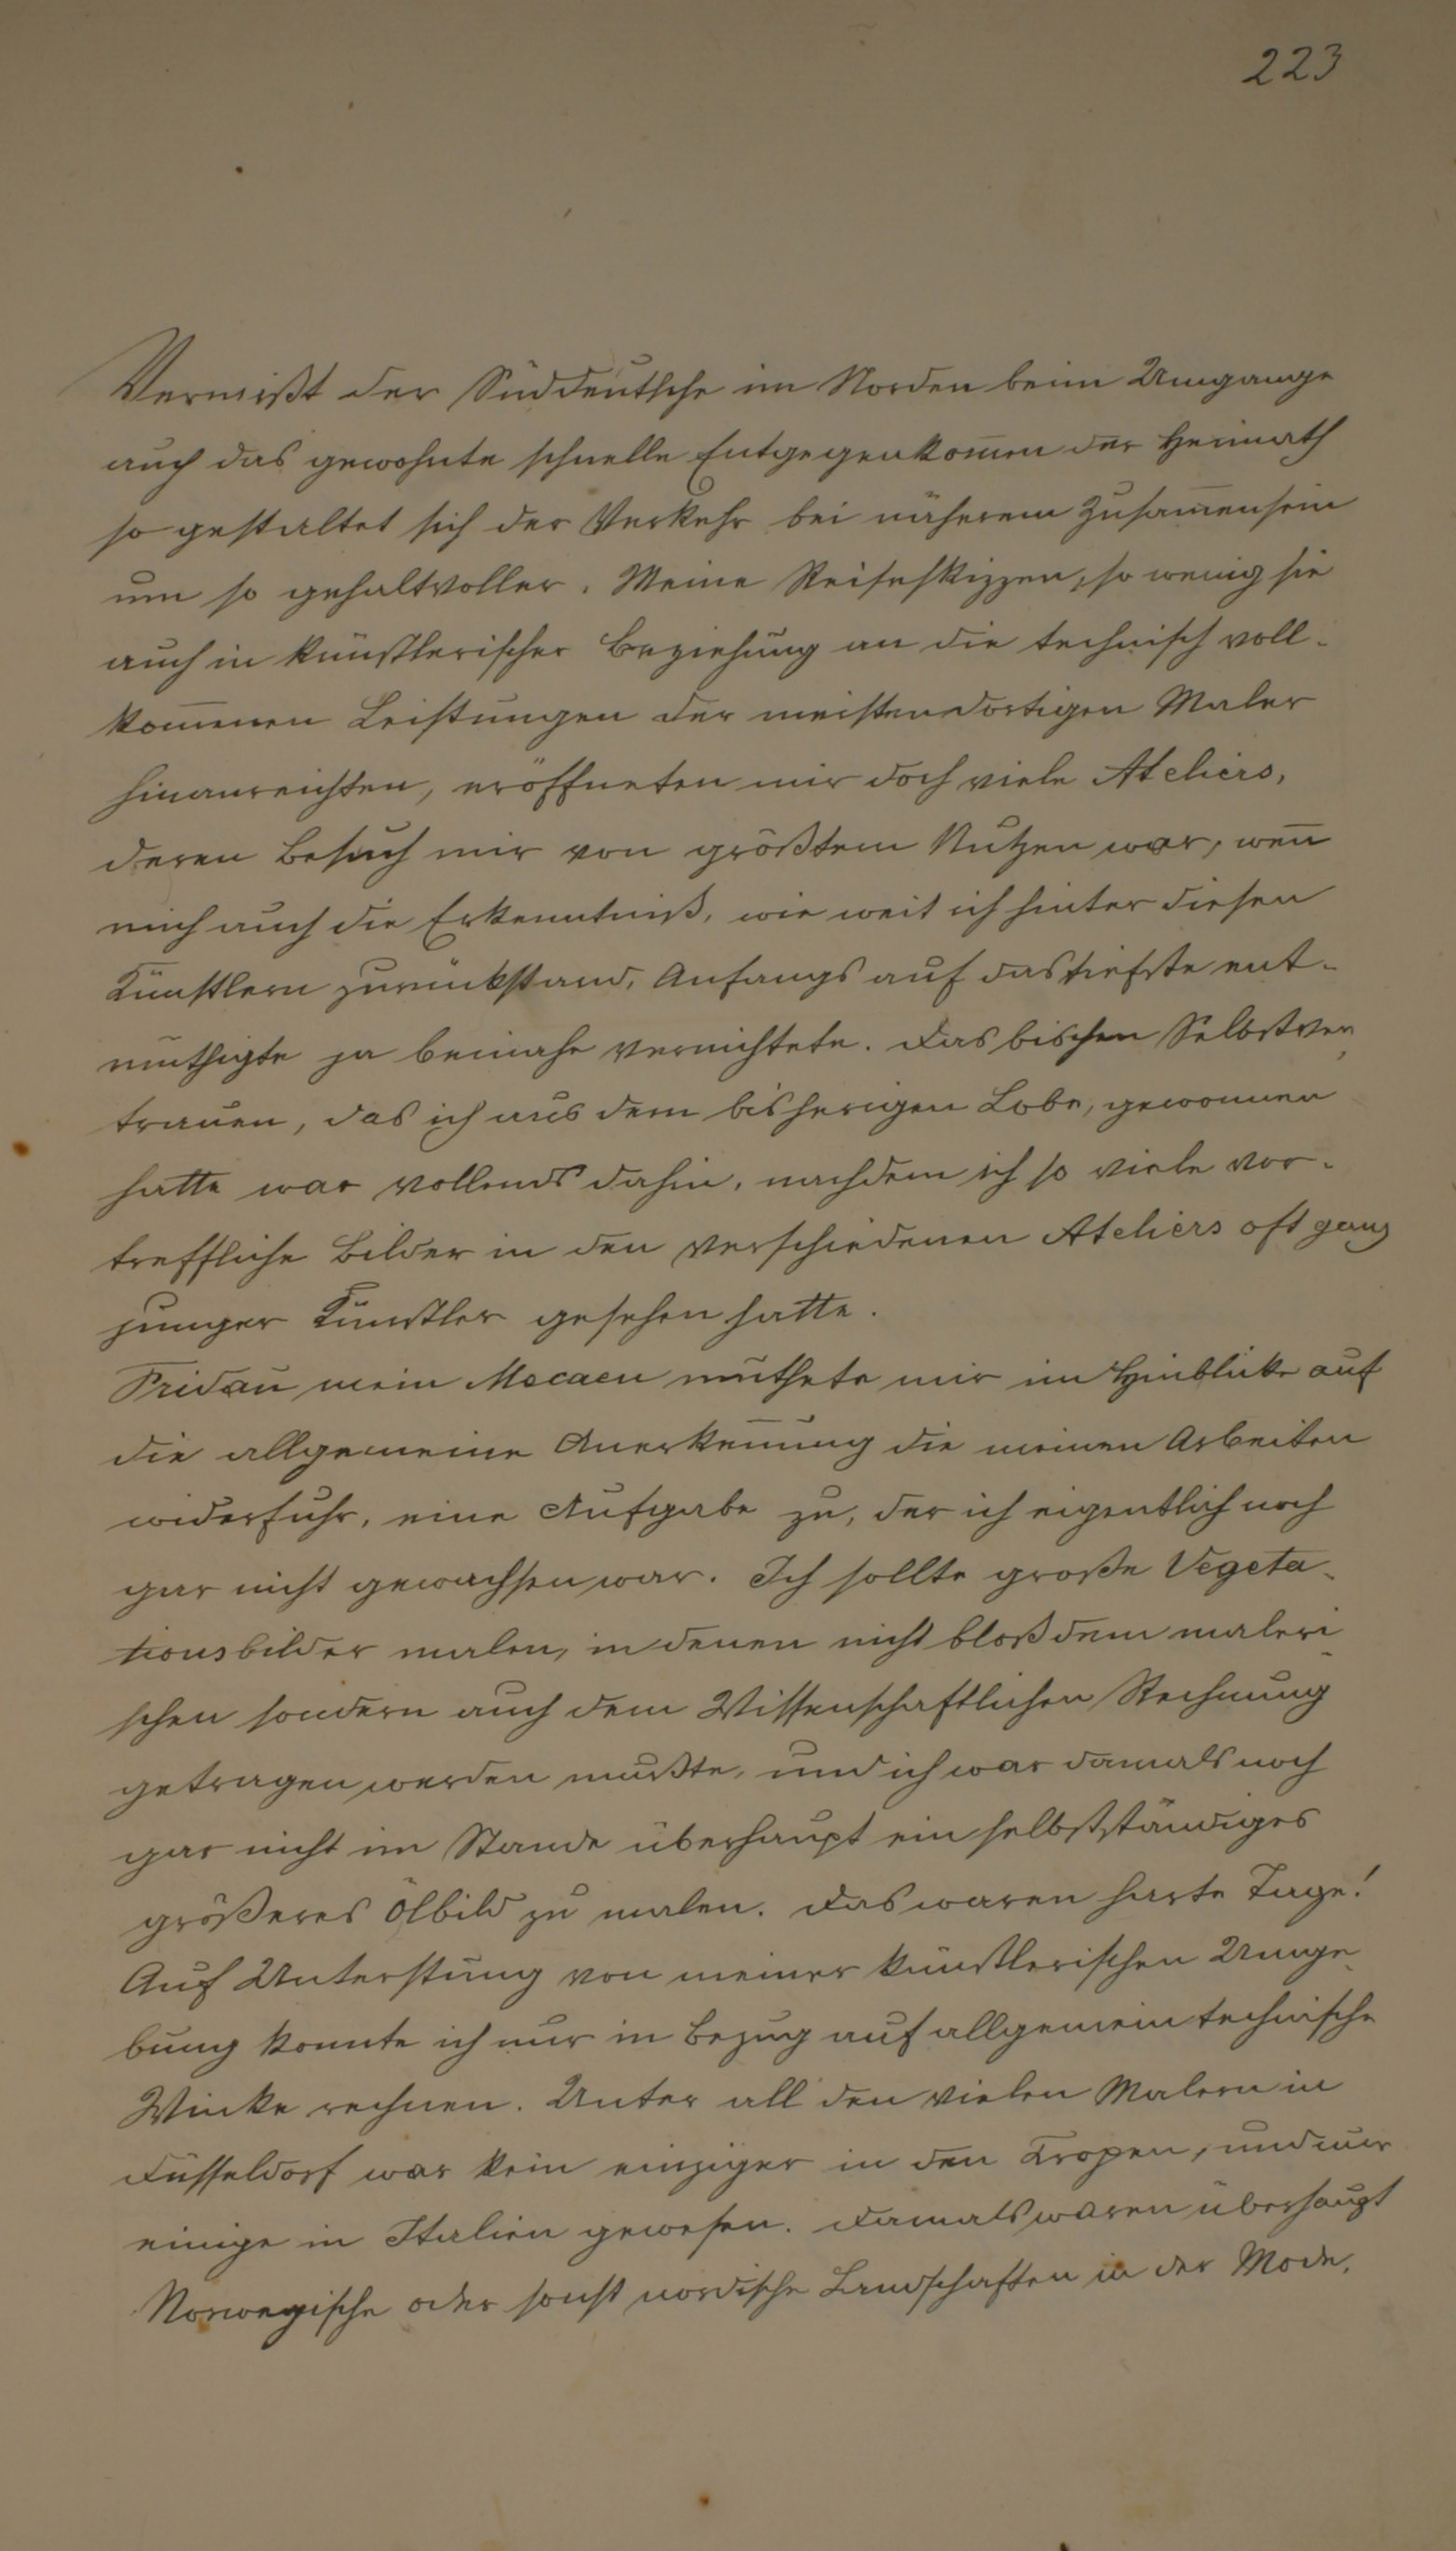 223
Vermißt der Süddeutsche im Norden beim Umgange
auch das gewohnte schnelle Entgegenkom̅en der Heimath
so gestaltet sich der Verkehr bei näherem Zusam̅ensein
um so gehaltvoller. Meine Reiseskizzen, so wenig sie
auch in künstlerischer Beziehung an die technisch voll-
kom̅enen Leistungen der meisten dortigen Maler
hinanreichten, eröffneten mir doch viele Ateliers,
deren Besuch mir von größtem Nutzen war, wen̅
mich auch die Erkenntniß, wie weit ich hinter diesen
Künstlern zurückstand, Anfangs auf das tiefste ent-
muthigte ja beinahe vernichtete. Das bischen Selbstver-
trauen, das ich aus dem bisherigen Lobe, gewonnen
hatte war vollends dahin, nachdem ich so viele vor-
treffliche Bilder in den verschiedenen Ateliers oft ganz
junger Künstler gesehen hatte.
Fridau mein Mecaen muthete mir im Hinblicke auf
die allgemeine Anerken̅ung die meinen Arbeiten
widerfuhr, eine Aufgabe zu, der ich eigentlich noch
gar nicht gewachsen war. Ich sollte große Vegeta-
tionsbilder malen, in denen nicht bloß dem maleri-
schen sondern auch dem Wissenschaftlichen Rechnung
getragen werden mußte, und ich war damals noch
gar nicht im Stande überhaupt ein selbstständiges
größeres Ölbild zu malen. Das waren harte Tage!
Auf Unterstung von meiner künstlerischen Umge-
bung konnte ich nur in Bezug auf allgemein technische
Winke rechnen. Unter all den vielen Malern in
Düsseldorf war kein einziger in den Tropen, und nur
einige in Italien gewesen. Damals waren überhaupt
Norwegische oder sonst nordische Landschaften in der Mode.